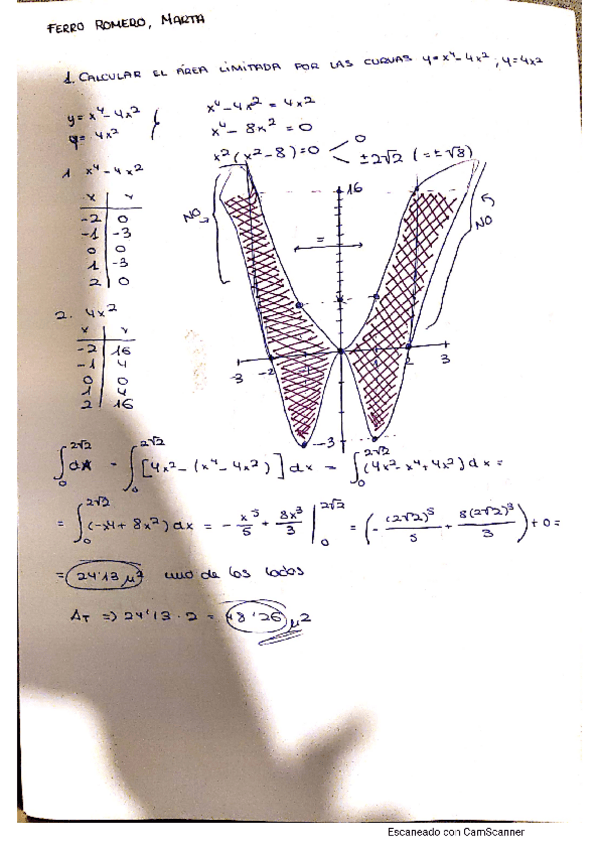 FERRO ROMERO, MARTA
1. CALCULAR EL ÁREA LIMITADA POR LAS CURVAS y=x⁴-4x²; y=4x²
y=x⁴-4x²
y=4x²
x⁴-4x²=4x²
x⁴-8x²=0
x²(x²-8)=0 < 0
±2√2 (=±√8)
1 x⁴-4x²
x | y
-2 | 0
-1 | -3
0 | 0
1 | -3
2 | 0
2. 4x²
x | y
-2 | 16
-1 | 4
0 | 0
1 | 4
2 | 16
NO
16
=
NO
-3 -2 1 2 3
-3
∫₀^2√2 dx = ∫₀^2√2 [4x²-(x⁴-4x²)] dx = ∫₀^2√2 (4x²-x⁴+4x²) dx =
= ∫₀^2√2 (-x⁴+8x²) dx = -x⁵/5 + 8x³/3 |₀^2√2 = (-(2√2)⁵/5 + 8(2√2)³/3) + 0 =
= 24'13 μ² uno de los lados
A_T => 24'13 · 2 = 48'26 μ²
Escaneado con CamScanner